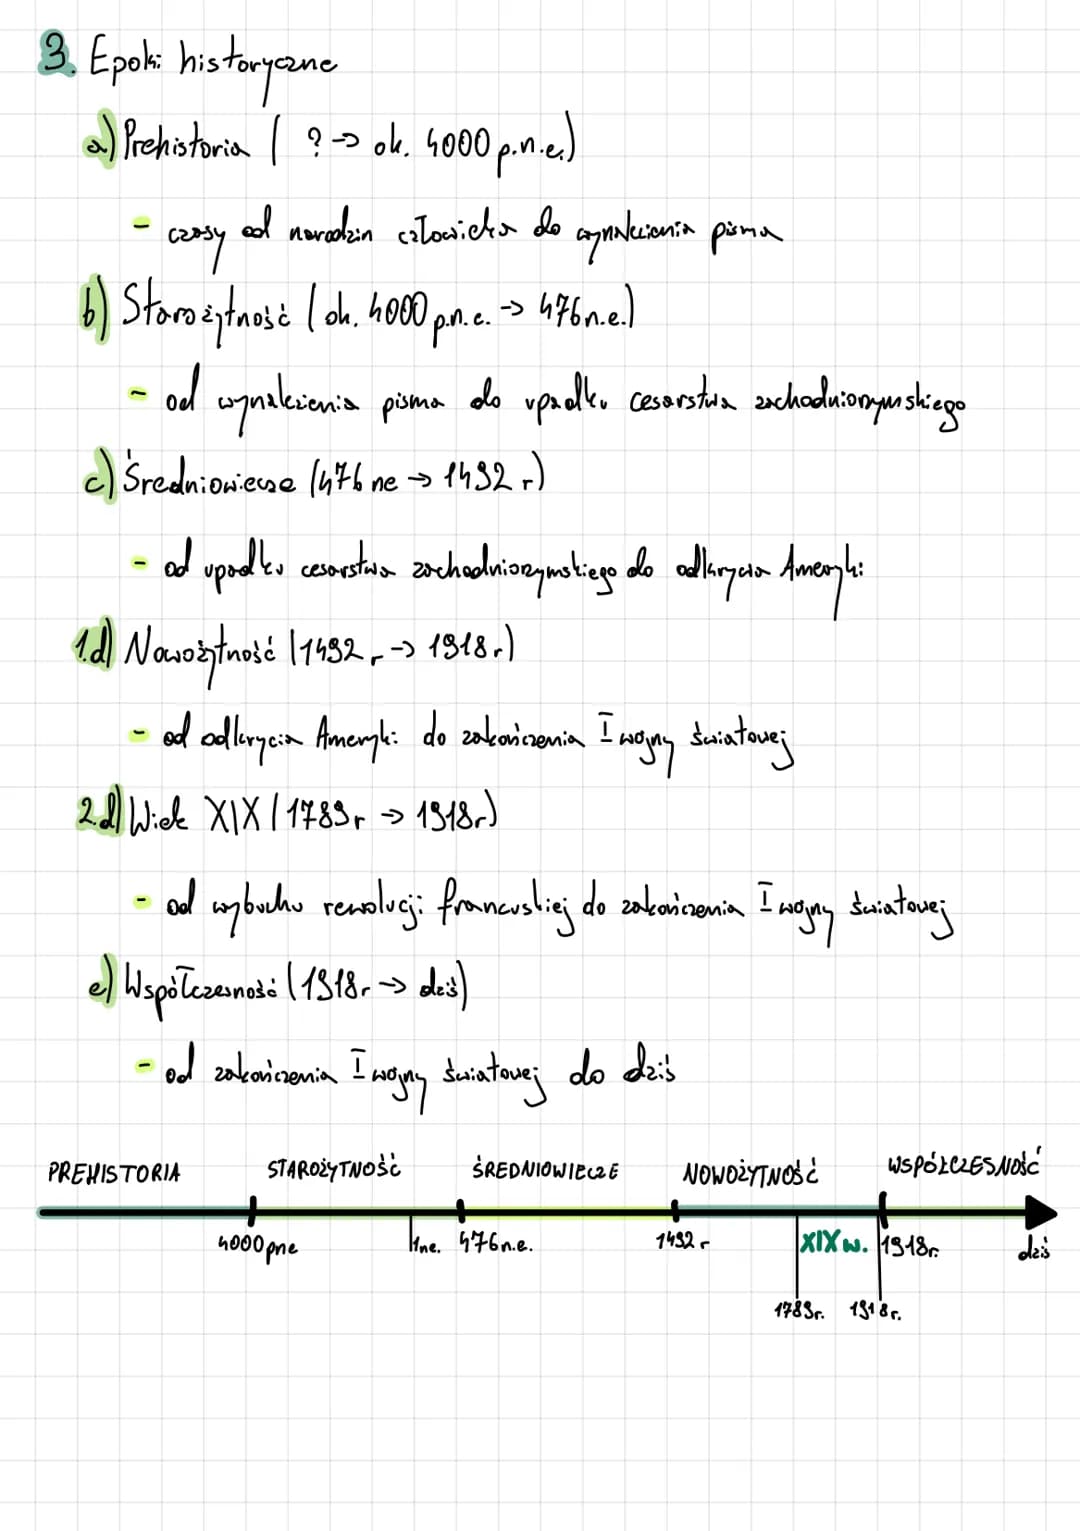 3. Epoki historyczne
a) Prehistoria ( ? → ok. 4000 p.n.e.)
- czasy od narodzin człowieka do wynalezienia pisma
b) Starożytność (ok. 4000 p.n.e. → 476 n.e.)
- od wynalezienia pisma do upadku cesarstwa zachodniorzymskiego
c) Średniowiecze (476 ne → 1492 r)
- od upadku cesarstwa zachodniorzymskiego do odkrycia Ameryki
1.d) Nowożytność (1492 r → 1918 r)
- od odkrycia Ameryki do zakończenia I wojny światowej
2.d) Wiek XIX (1789 r → 1918 r)
- od wybuchu rewolucji francuskiej do zakończenia I wojny światowej
e) Współczesność (1918 r → dziś)
- od zakończenia I wojny światowej do dziś
PREHISTORIA STAROŻYTNOŚĆ ŚREDNIOWIECZE NOWOŻYTNOŚĆ WSPÓŁCZESNOŚĆ
4000 pne 1 ne. 476 n.e. 1492 r XIX w. 1918 r. dziś
1789 r. 1918 r.